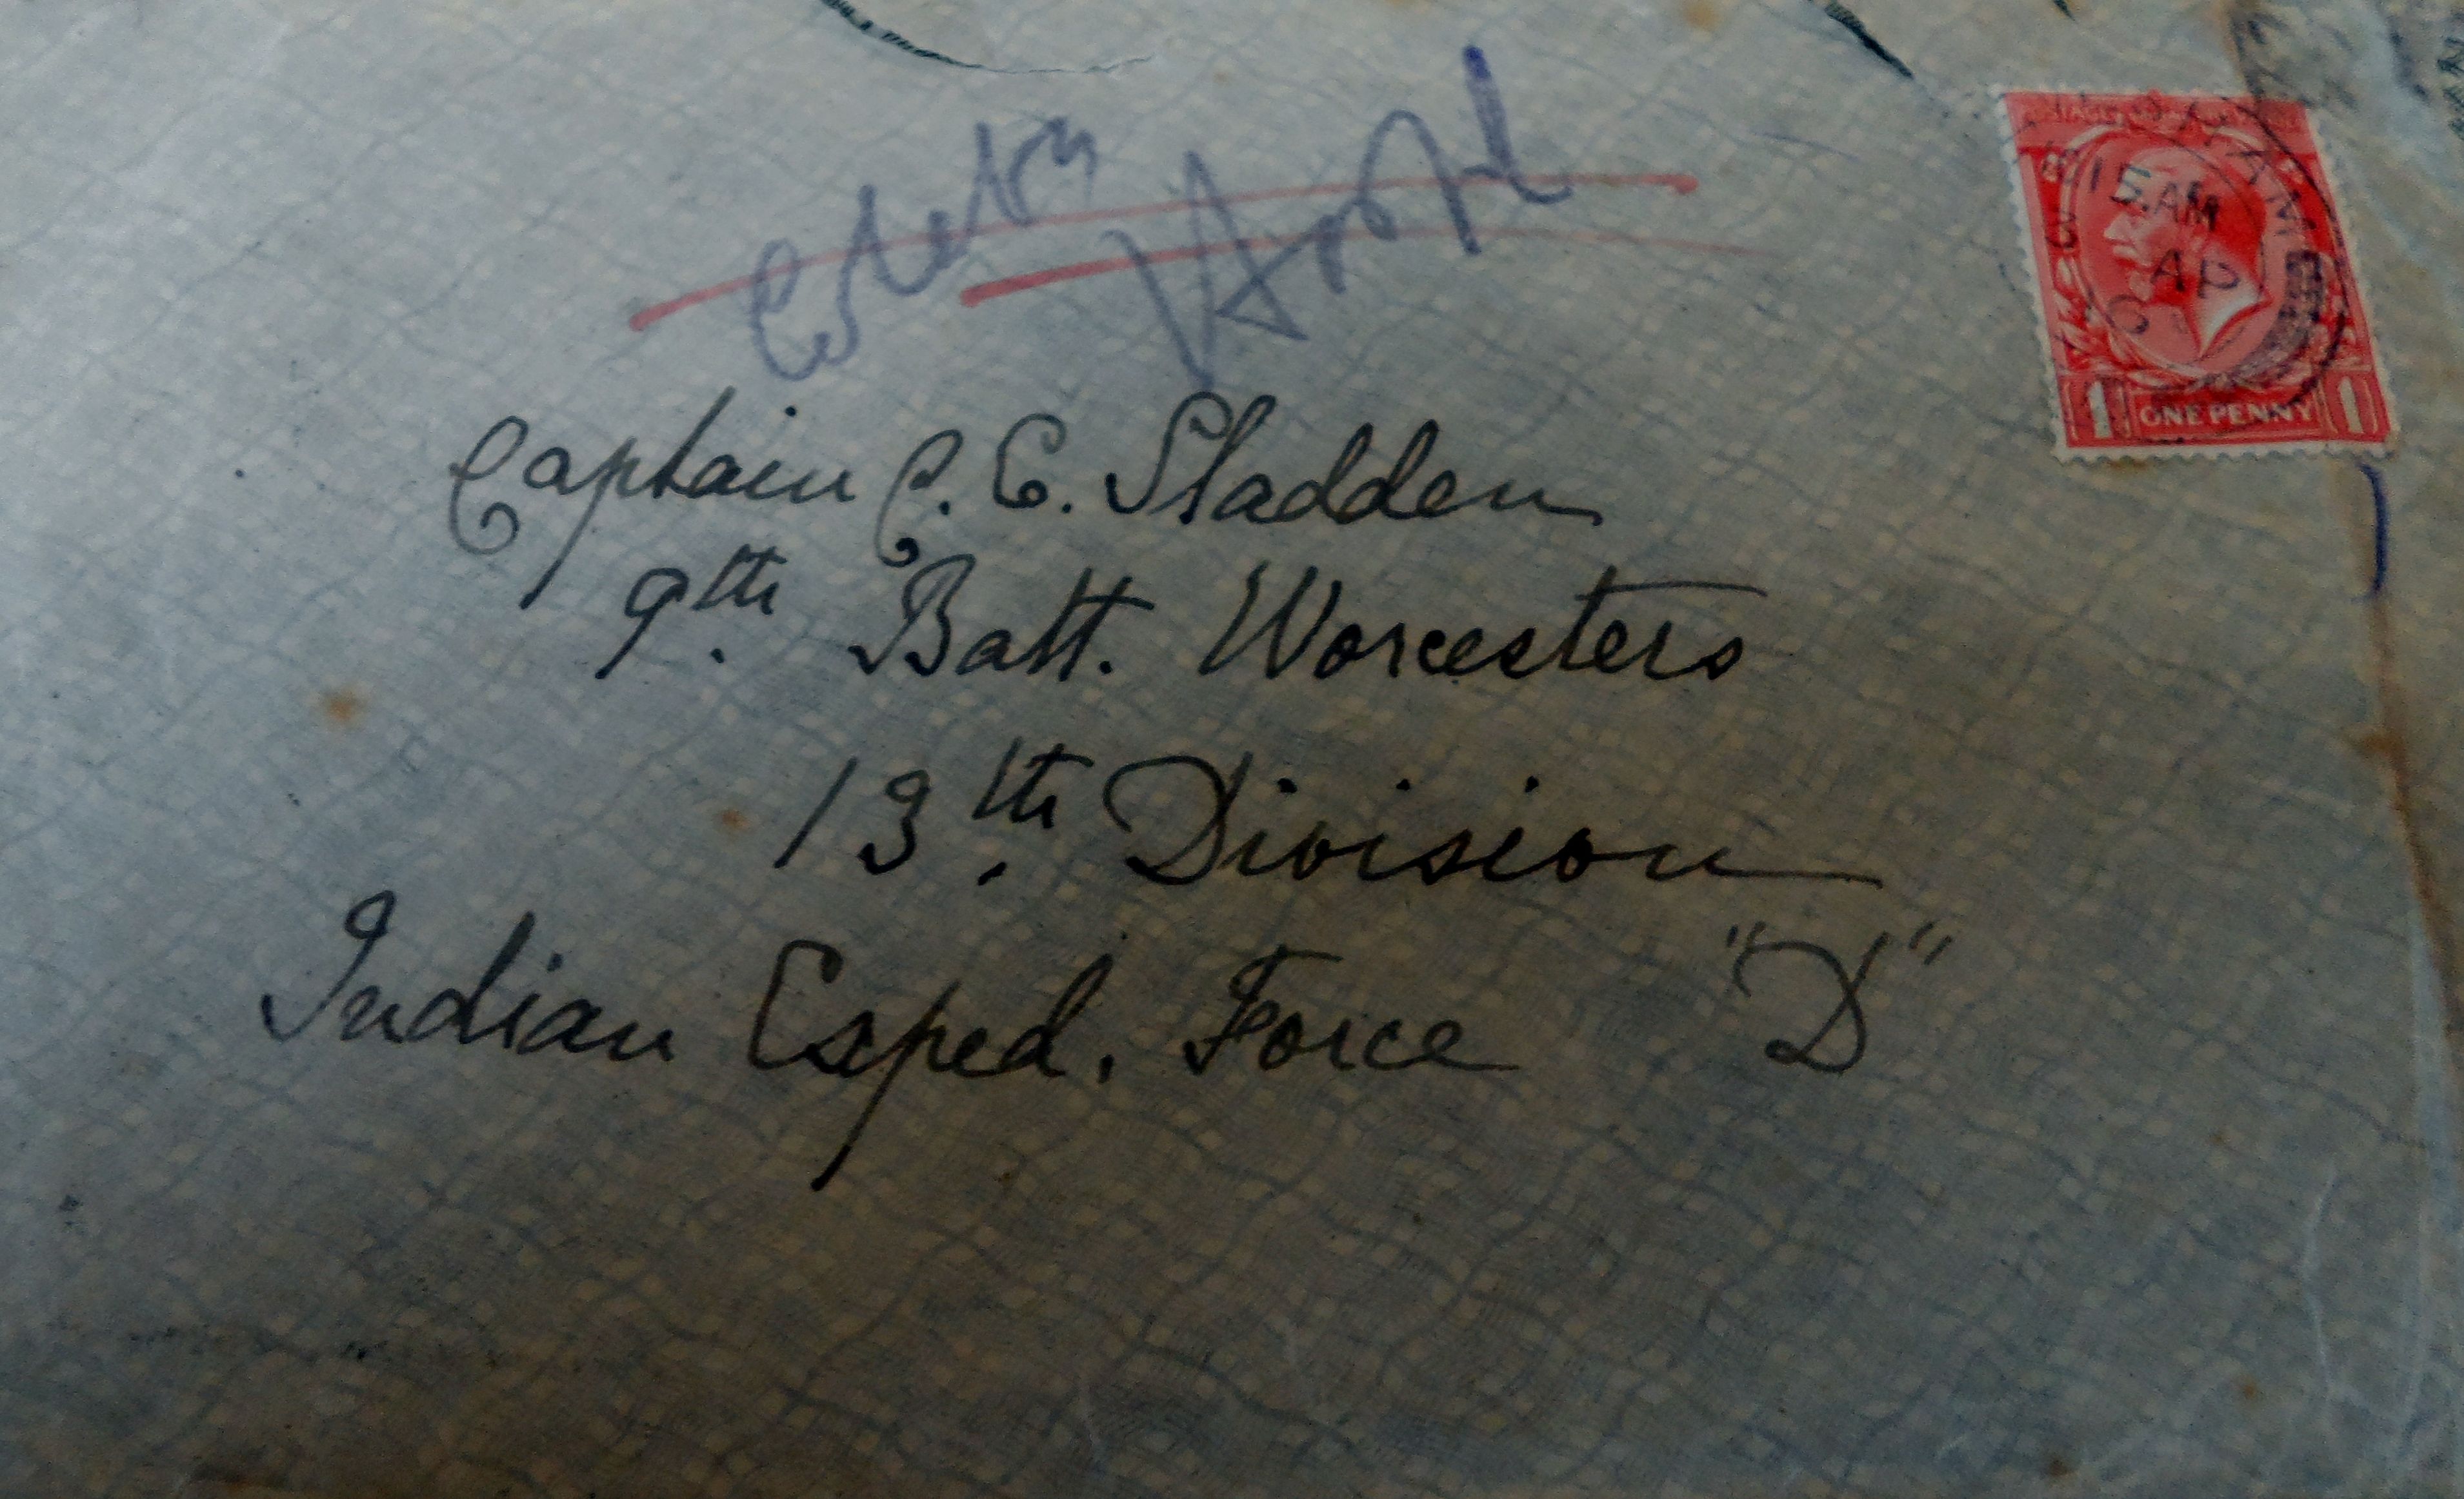 Captain C. E. Sladden
9th. Batt. Worcesters
13th. Division
Indian Exped. Force "D"
15. AM
AP
1 ONE PENNY 1